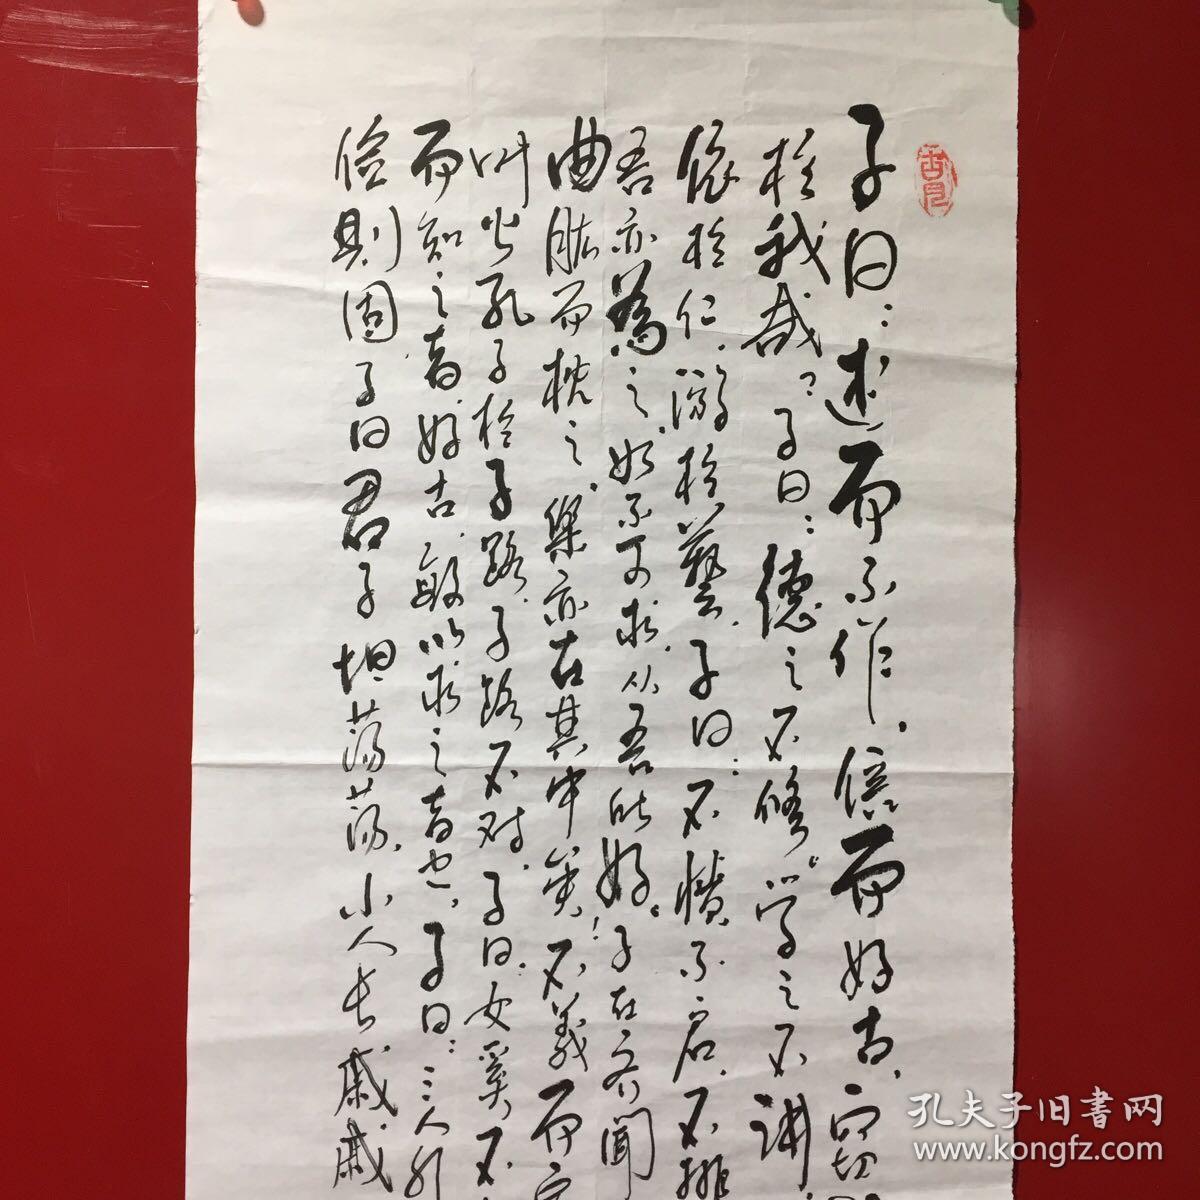 子曰：述而不作，信而好古，窃
於我哉？子曰：德之不修，学之不讲
依於仁，游於藝。子曰：不憤不启，不排
吾亦為之，如不可求，从吾所好。子在齐聞
曲肱而枕之，樂亦在其中矣！不義而
叶公孔子於子路，子路不对。子曰：女奚不
而知之者，好古，敏以求之者也。子曰：三人行
俭则固 子曰君子坦荡荡，小人长戚戚
孔夫子旧書网
www.kongfz.com